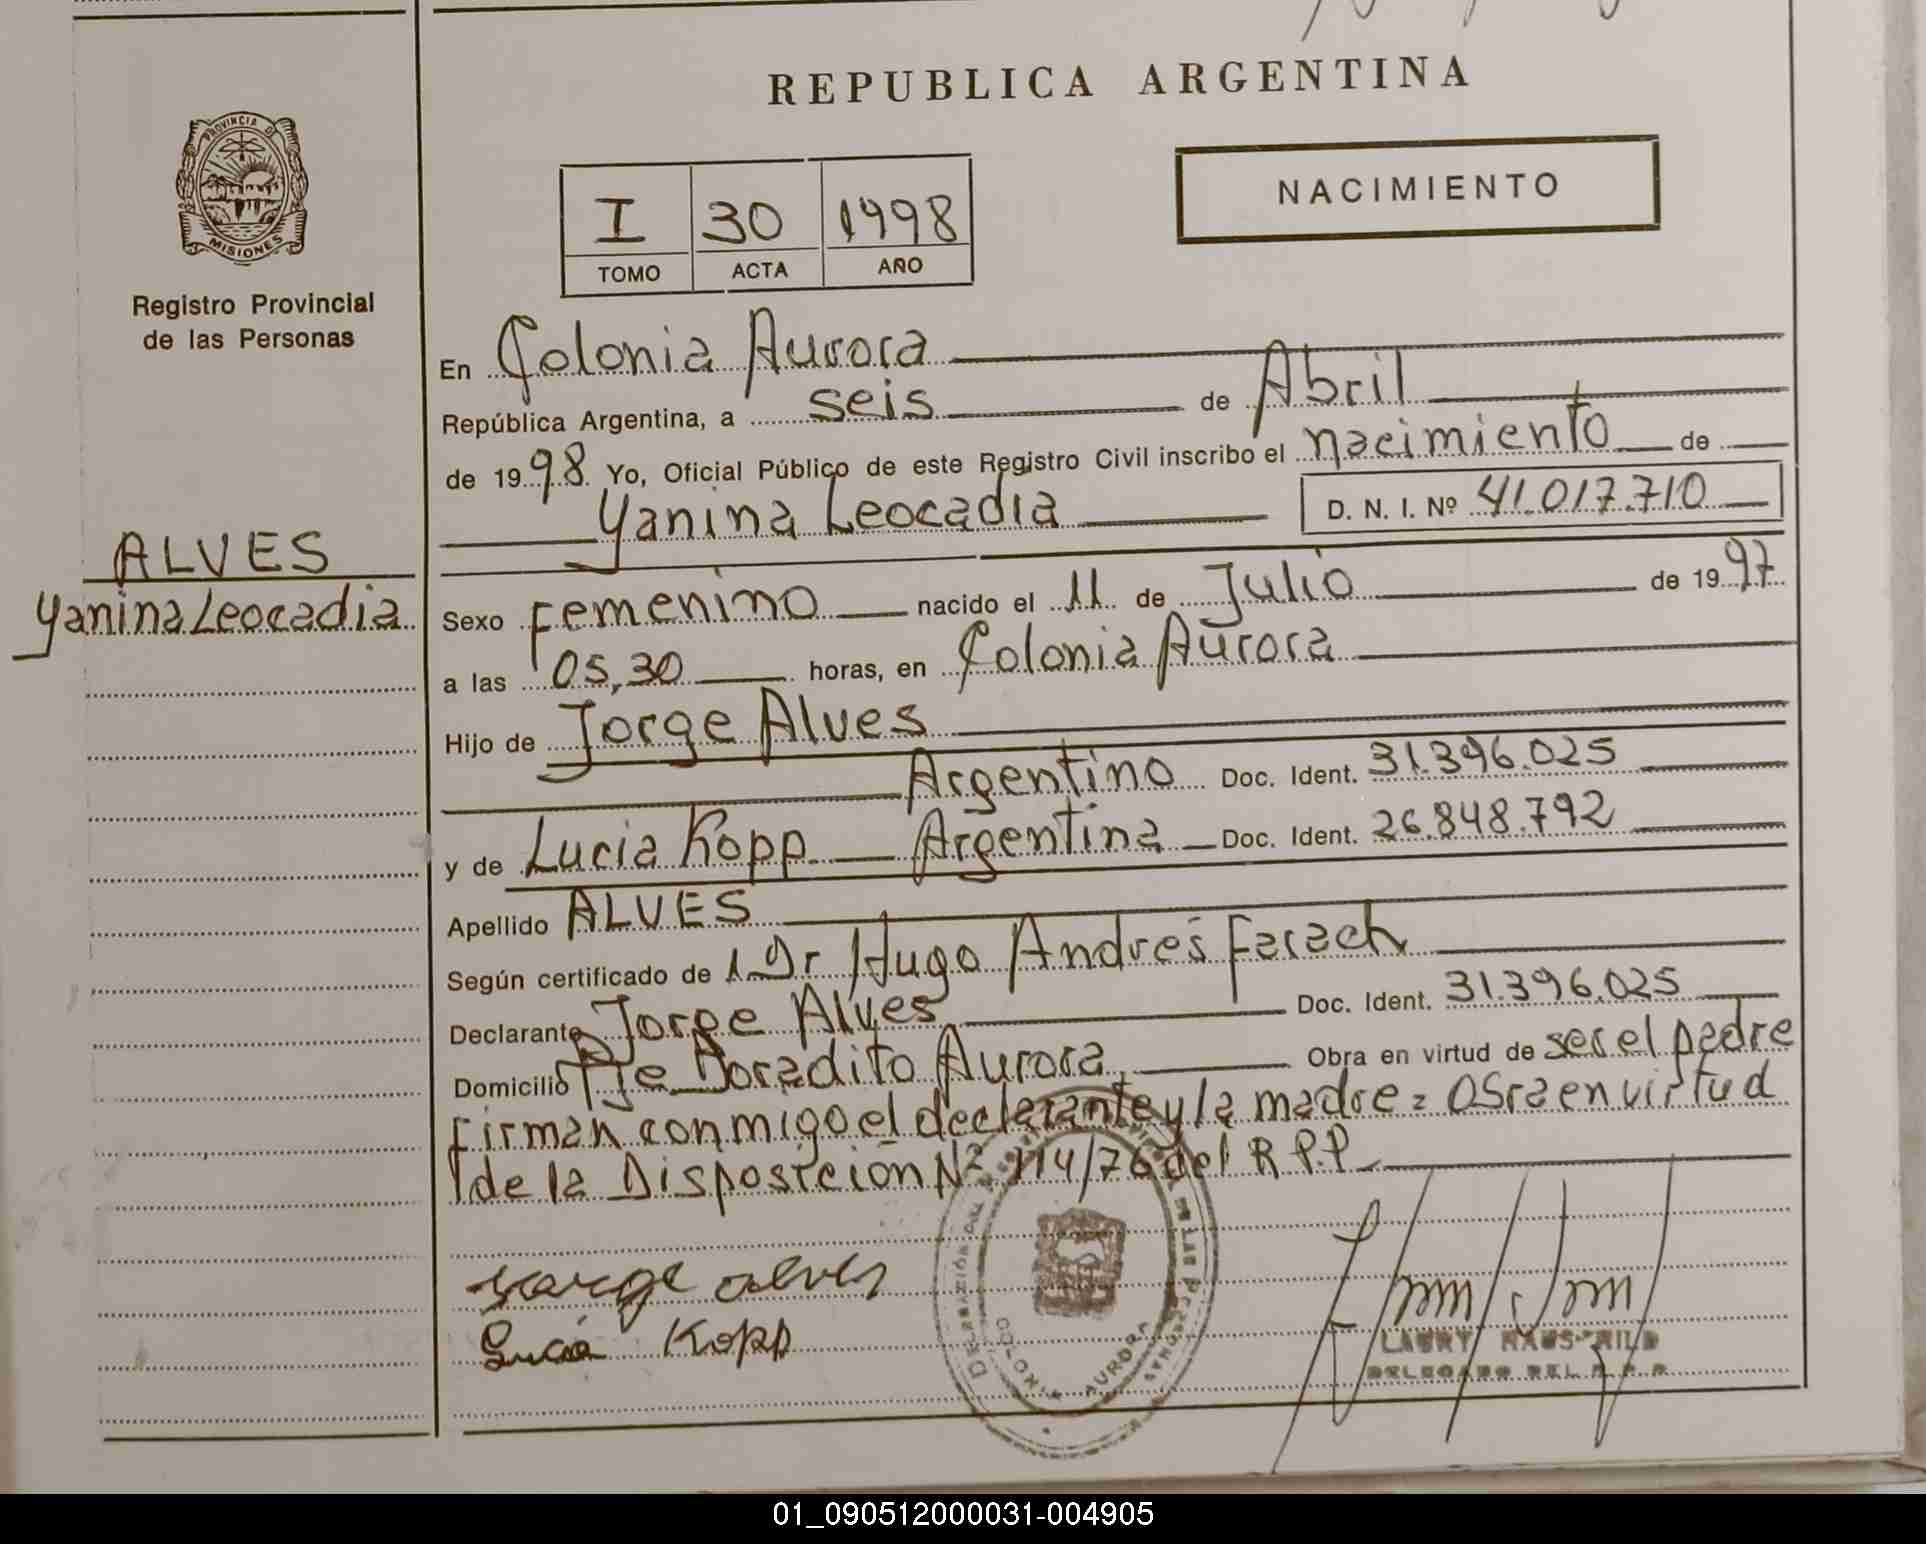 REPUBLICA ARGENTINA
PROVINCIA DE
MISIONES
Registro Provincial
de las Personas
NACIMIENTO
I 30 1998
TOMO ACTA AÑO
En Colonia Aurora
República Argentina, a seis de Abril
de 1998 Yo, Oficial Público de este Registro Civil inscribo el nacimiento de
Yanina Leocadia D. N. I. Nº 41.017.710
ALVES
Yanina Leocadia
Sexo Femenino nacido el 11 de Julio de 1997
a las 05,30 horas, en Colonia Aurora
Hijo de Jorge Alves
Argentino Doc. Ident. 31.396.025
y de Lucia Kopp Argentina Doc. Ident. 26.848.792
Apellido ALVES
Según certificado de Dr Hugo Andrés Farach
Declarante Jorge Alves Doc. Ident. 31.396.025
Domicilio Pje Doradito Aurora, Obra en virtud de ser el padre
Firman conmigo el declarante y la madre = en virtud
de la Disposición Nº 114/76 del R P.P
Jorge Alves
Lucia Kopp
COLONIA AURORA
DELEGADO DEL R.P.P.
01_090512000031-004905